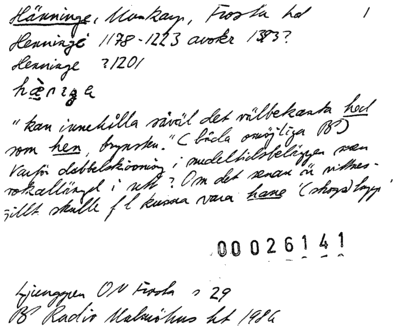 Hänninge, Munkarp, Frosta hd 1
Henninge 1178-1223 avskr 1383?
Henninge ?1201
hænɪŋa
"kan innehålla såväl det välbekanta hed
som hen, brynsten." (båda omöjliga BP)
Varför dubbelskrivning i medeltidsbeläggen men
vokallängd i utt? Om det senare är
skulle f l kunna vara hane
00026141
Ljunggren ON Frosta s 29
BP Radio Malmöhus ht 1986